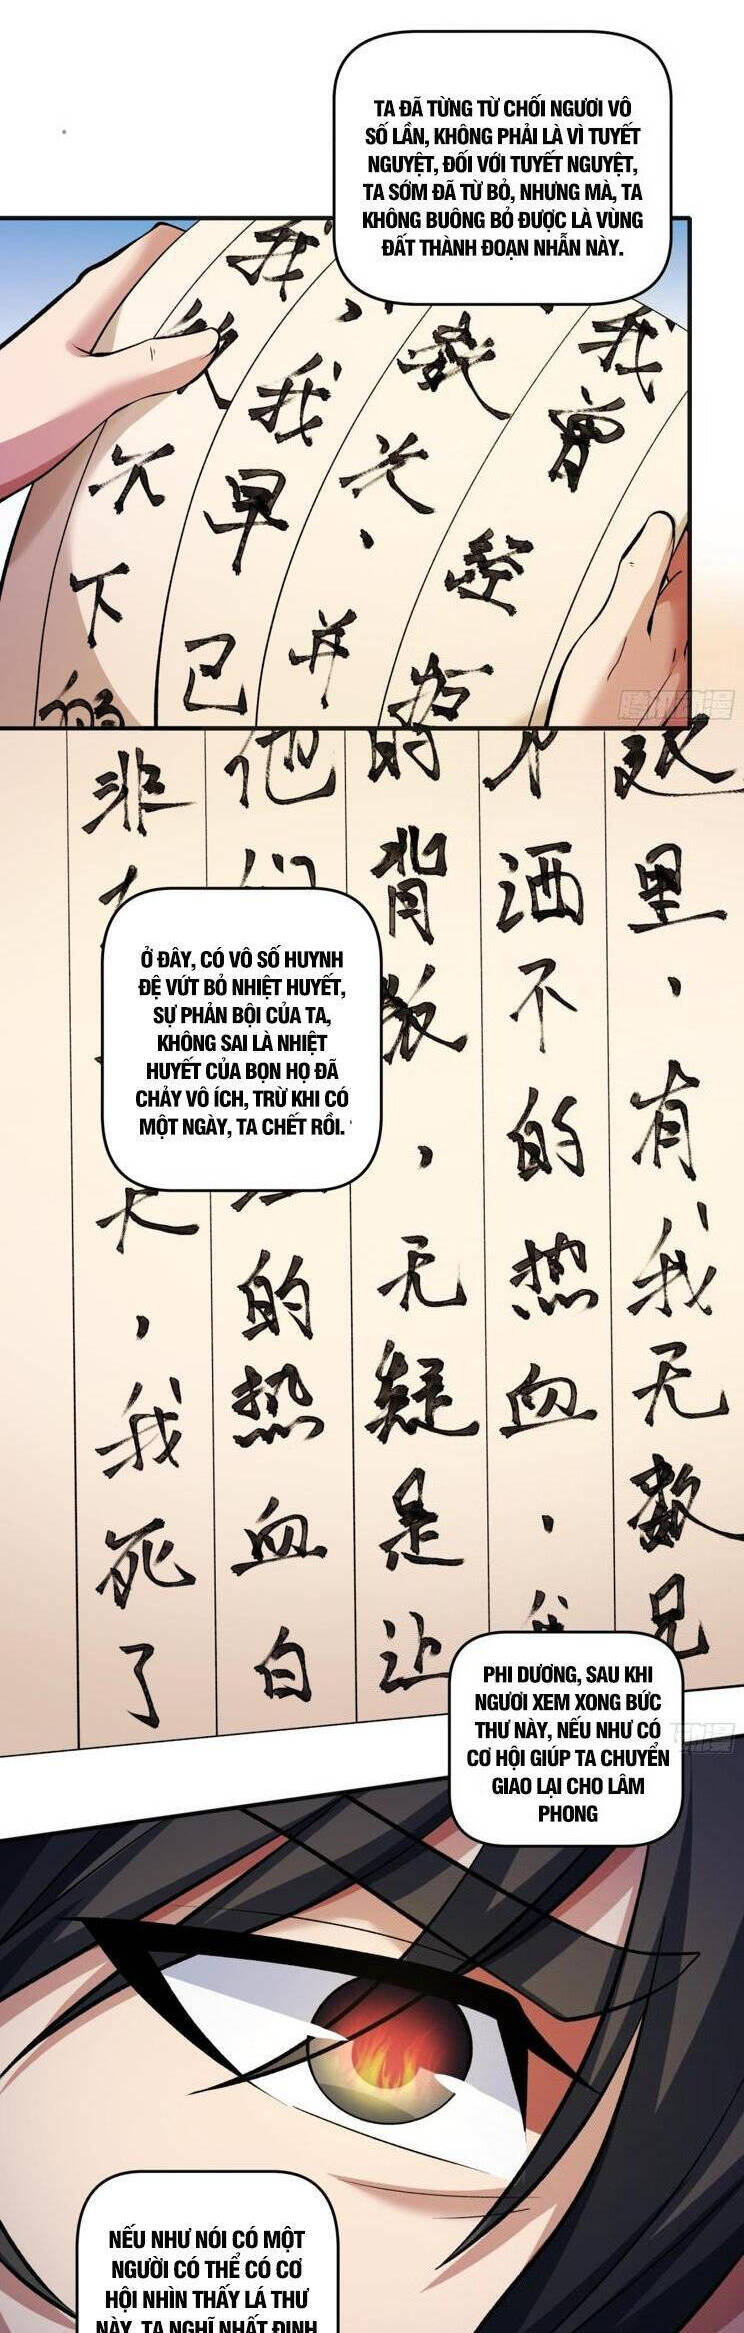 TA ĐÃ TỪNG TỪ CHỐI NGƯƠI VÔ
SỐ LẦN, KHÔNG PHẢI LÀ VÌ TUYẾT
NGUYỆT, ĐỐI VỚI TUYẾT NGUYỆT,
TA SỚM ĐÃ TỪ BỎ, NHƯNG MÀ, TA
KHÔNG BUÔNG BỎ ĐƯỢC LÀ VÙNG
ĐẤT THÀNH ĐOẠN NHẪN NÀY.
我曾经
我早已
不下的
里，有我无数兄
洒不的热血，我
的背叛，无疑是让
的热血白
天，我死了
Ở ĐÂY, CÓ VÔ SỐ HUYNH
ĐỆ VỨT BỎ NHIỆT HUYẾT,
SỰ PHẢN BỘI CỦA TA,
KHÔNG SAI LÀ NHIỆT
HUYẾT CỦA BỌN HỌ ĐÃ
CHẢY VÔ ÍCH, TRỪ KHI CÓ
MỘT NGÀY, TA CHẾT RỒI.
PHI DƯƠNG, SAU KHI
NGƯƠI XEM XONG BỨC
THƯ NÀY, NẾU NHƯ CÓ
CƠ HỘI GIÚP TA CHUYỂN
GIAO LẠI CHO LÂM
PHONG
NẾU NHƯ NÓI CÓ MỘT
NGƯỜI CÓ THỂ CÓ CƠ
HỘI NHÌN THẤY LÁ THƯ
NÀY, TA NGHĨ NHẤT ĐỊNH